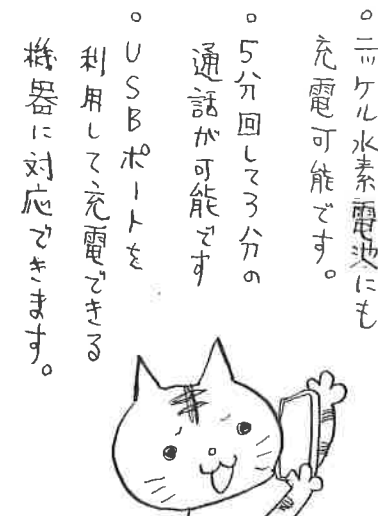 。ニッケル水素電池にも
充電可能です。
。5分回して3分の
通話が可能です
。USBポートを
利用して充電できる
機器に対応できます。